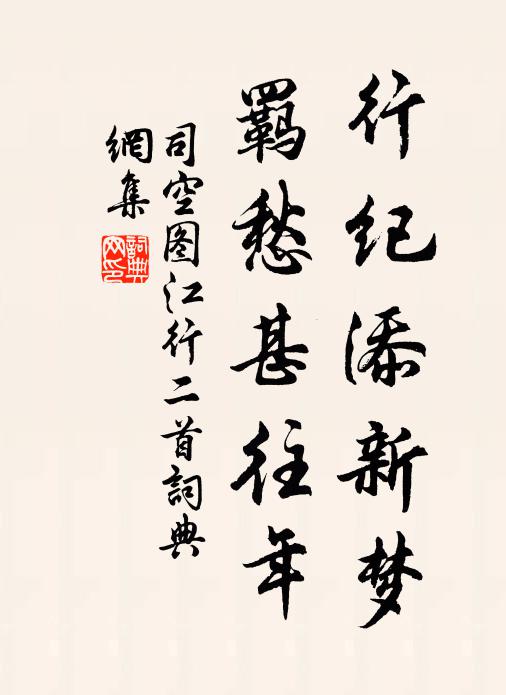 行纪添新梦
羁愁甚往年
司空图江行二首詞典
網集
詞典
网印